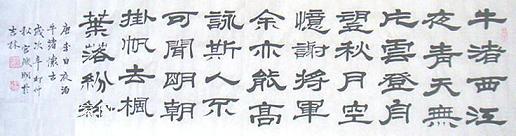 牛渚西江
夜青天無
片雲登舟
望秋月空
憶謝將軍
余亦能高
詠斯人不
可聞明朝
掛帆去楓
葉落紛紛
唐李白夜泊
牛渚懷古
歲次辛卯仲
秋於
吉林